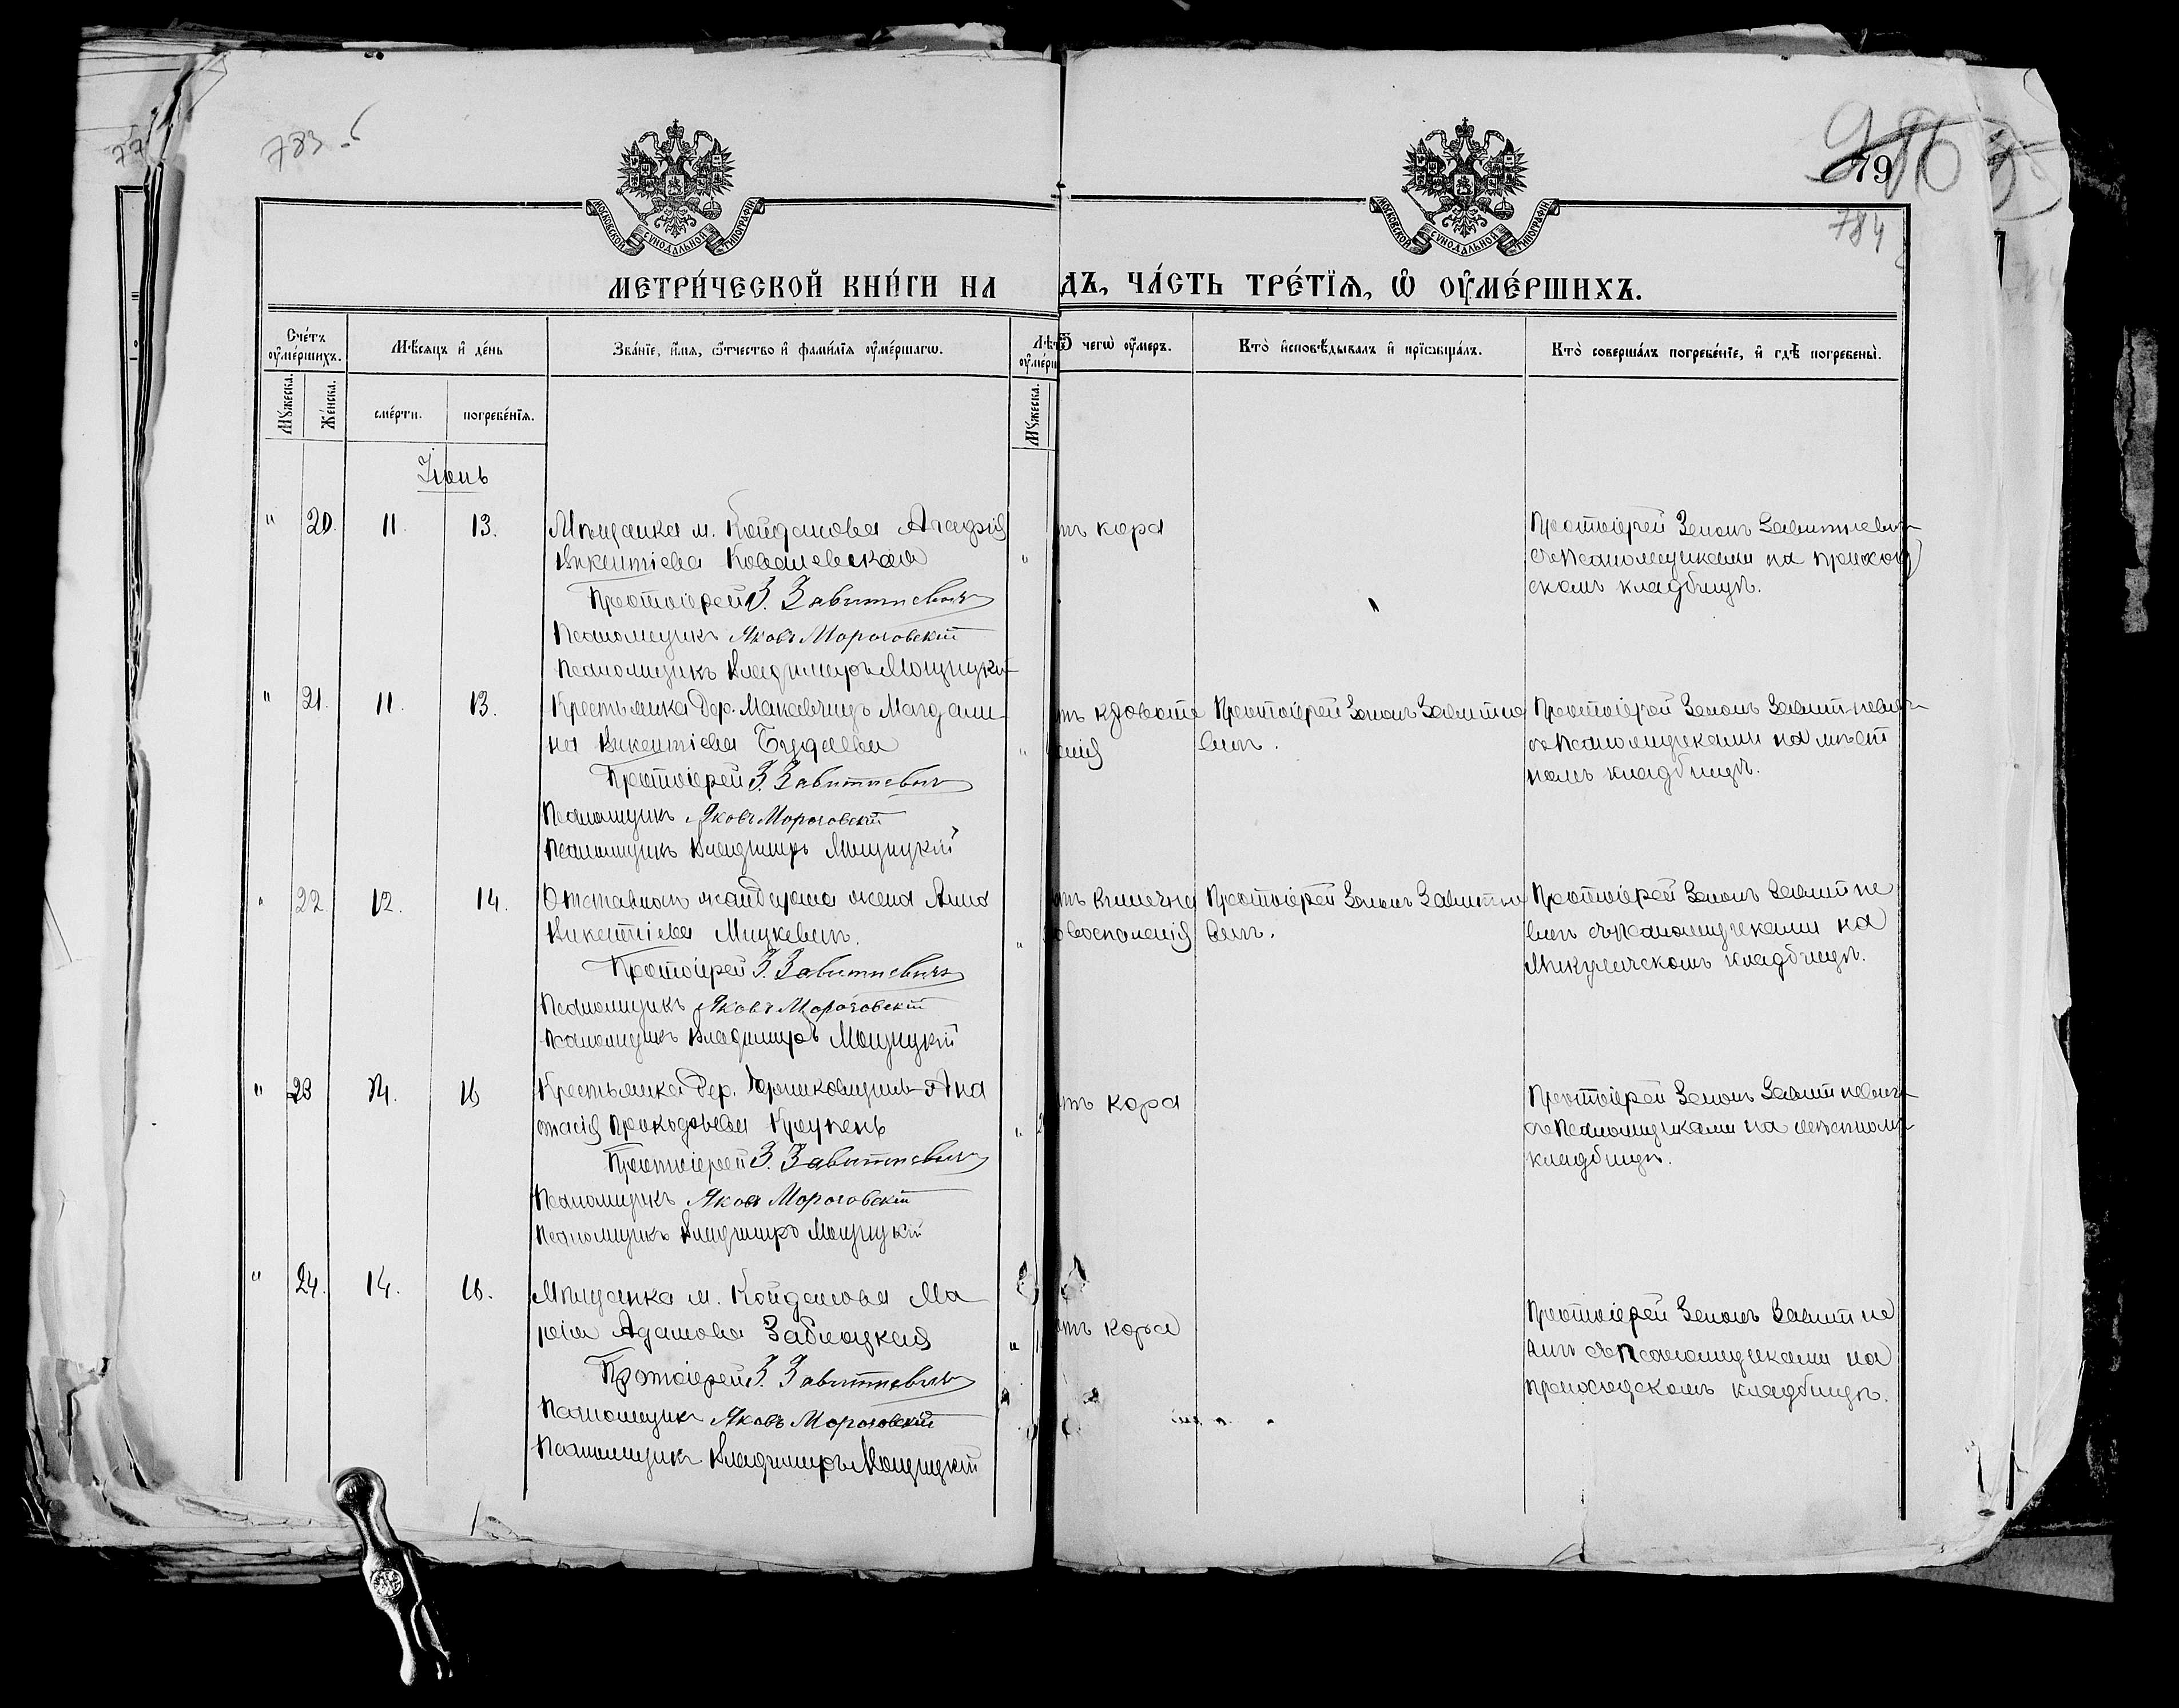 783 об
79
784
МОСКОВСКОЙ СУНОДАЛЬНОЙ ТИПОГРАФІИ
МОСКОВСКОЙ СУНОДАЛЬНОЙ ТИПОГРАФІИ
МЕТРИ́ЧЕСКОЙ КНИ́ГИ НА
ДЪ, ЧА́СТЬ ТРЕ́ТЇЯ, Ѡ҆ ОУ҆МЕ́РШИХЪ.
Сче́тъ оу҆ме́ршихъ.
Мѣ́сяцъ и҆ де́нь
Зва́нїе, и҆́мя, ѻ҆́тчество и҆ фами́лїя оу҆ме́ршагѡ.
Лѣ́т
оу҆ме́рш
Ѿ чегѡ̀ оу҆́меръ.
Кто̀ и҆сповѣ́дывалъ и҆ прїѡбща́лъ.
Кто̀ соверша́лъ погребе́нїе, и҆ гдѣ̀ погребены̀.
Мꙋ́жеска.
Же́нска.
сме́рти.
погребе́нїя.
Мꙋ́жеска.
Іюнь
" 20. 11. 13. Мѣщанка м. Койданова Агафія
Викентіева Ковалевская
Протоіерей З. Завитневичъ
Псаломщикъ Яковъ Мороговскій
Псаломщикъ Владиміръ Мощицкій
тъ кора
Протоіерей Зенонъ Завитневичъ
съ псаломщиками на приход
скомъ кладбищѣ.
" 21. 11. 13. Крестьянка дер. Макавчицъ Магдали
на Викентіева
Протоіерей З. Завитневичъ
Псаломщикъ Яковъ Мороговскій
Псаломщикъ Владиміръ Мощицкій
Протоіерей Зенонъ Завитне
вичъ.
Протоіерей Зенонъ Завитневичъ
съ псаломщиками на мѣст
номъ кладбищѣ.
" 22. 12. 14. Отставного жандарма жена Анна
Викентіева Мицкевичъ.
Протоіерей З. Завитневичъ
Псаломщикъ Яковъ Мороговскій
Псаломщикъ Владиміръ Мощицкій
воспаленія
Протоіерей Зенонъ Завитне
вичъ.
Протоіерей Зенонъ Завитне
вичъ съ псаломщиками на
кладбищѣ.
" 23 14. 16 Крестьянка дер. Ана
стасія
Протоіерей З. Завитневичъ
Псаломщикъ Яковъ Мороговскій
Псаломщикъ Владиміръ Мощицкій
тъ кора
Протоіерей Зенонъ Завитневичъ
съ псаломщиками на мѣстномъ
кладбищѣ.
" 24. 14. 16. Мѣщанка м. Койданова Ма
рія Адамова Заблоцкая
Протоіерей З. Завитневичъ
Псаломщикъ Яковъ Мороговскій
Псаломщикъ Владиміръ Мощицкій
отъ кора
Протоіерей Зенонъ Завитне
вичъ съ псаломщиками на
приходскомъ кладбищѣ.